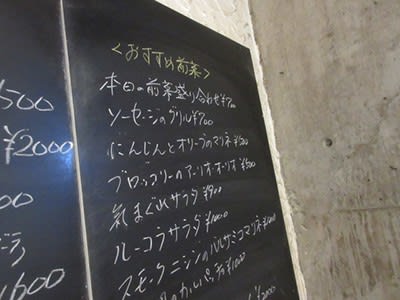 500
¥2000
00
¥600
<おすすめ前菜>
本日の前菜盛り合わせ
ソーセージのグリル ¥700
にんじんとオリーブのマリネ ¥500
ブロッコリーのアーリオ・オーリオ ¥500
気まぐれサラダ ¥900
ルーコラサラダ ¥1000
スモークニシンのバルサミコマリネ
のカルパッチョ ¥1000